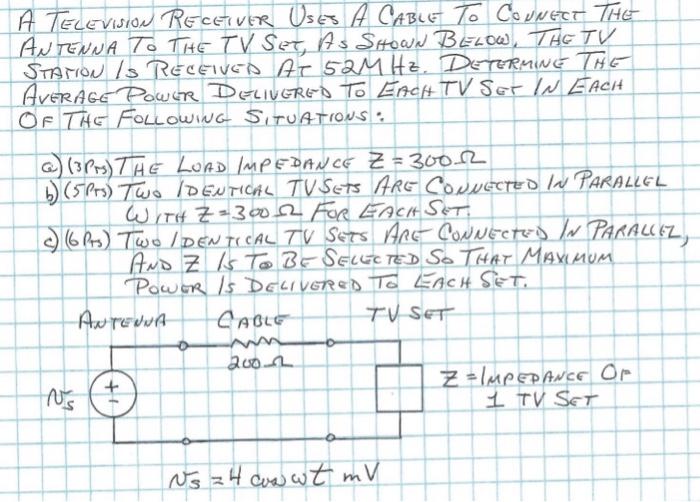 A TELEVISION RECEIVER USES A CABLE TO CONNECT THE
ANTENNA TO THE TV SET, AS SHOWN BELOW. THE TV
STATION IS RECEIVED AT 52MHz. DETERMINE THE
AVERAGE POWER DELIVERED TO EACH TV SET IN EACH
OF THE FOLLOWING SITUATIONS:
a) (3PTS) THE LOAD IMPEDANCE Z = 300Ω
b) (5PTS) TWO IDENTICAL TV SETS ARE CONNECTED IN PARALLEL
WITH Z = 300Ω FOR EACH SET.
c) (6PTS) TWO IDENTICAL TV SETS ARE CONNECTED IN PARALLEL,
AND Z IS TO BE SELECTED SO THAT MAXIMUM
POWER IS DELIVERED TO EACH SET.
ANTENNA CABLE TV SET
200Ω
Z = IMPEDANCE OF
1 TV SET
+
-
Ns
Ns = 4 cos ωt mV